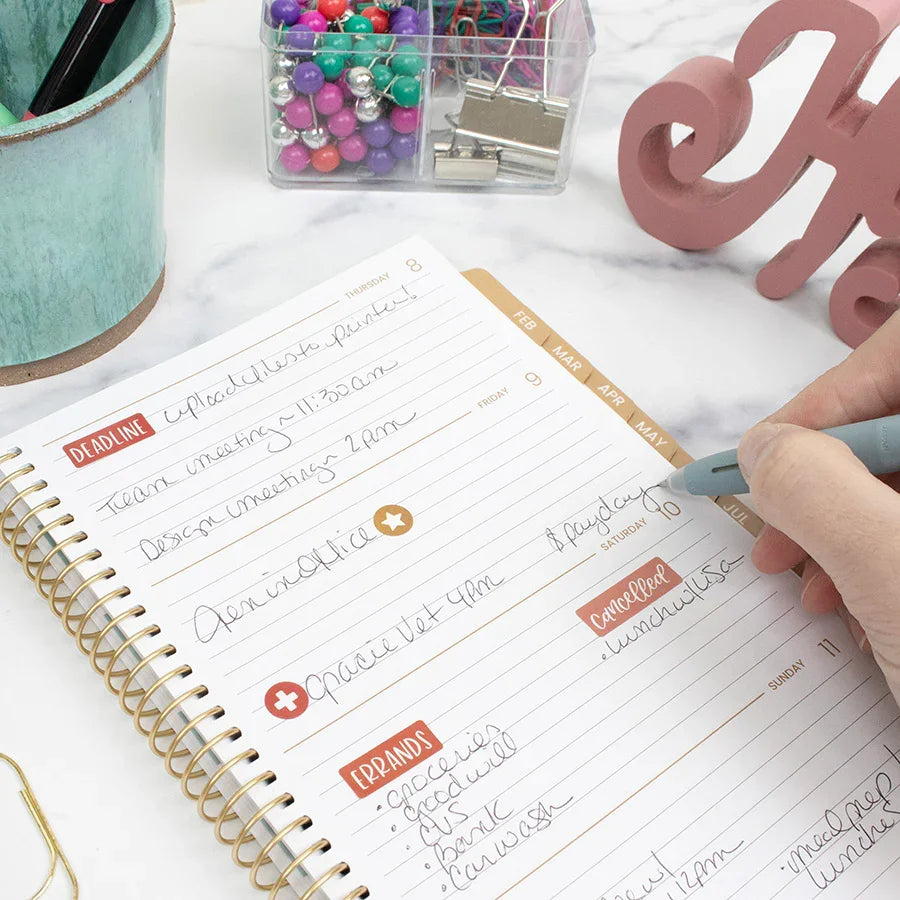 THURSDAY 8
DEADLINE upload files to printer!
Team meeting ~ 11:30am
Design meeting ~ 2pm
FRIDAY 9
Jen in Office
$payday
Gracie Vet 4pm
SATURDAY 10
cancelled
• lunch w/ Lisa
ERRANDS
• groceries
• goodwill
• CVS
• bank
• car wash
SUNDAY 11
12pm
• meal prep
lunches
FEB
MAR
APR
MAY
JUL